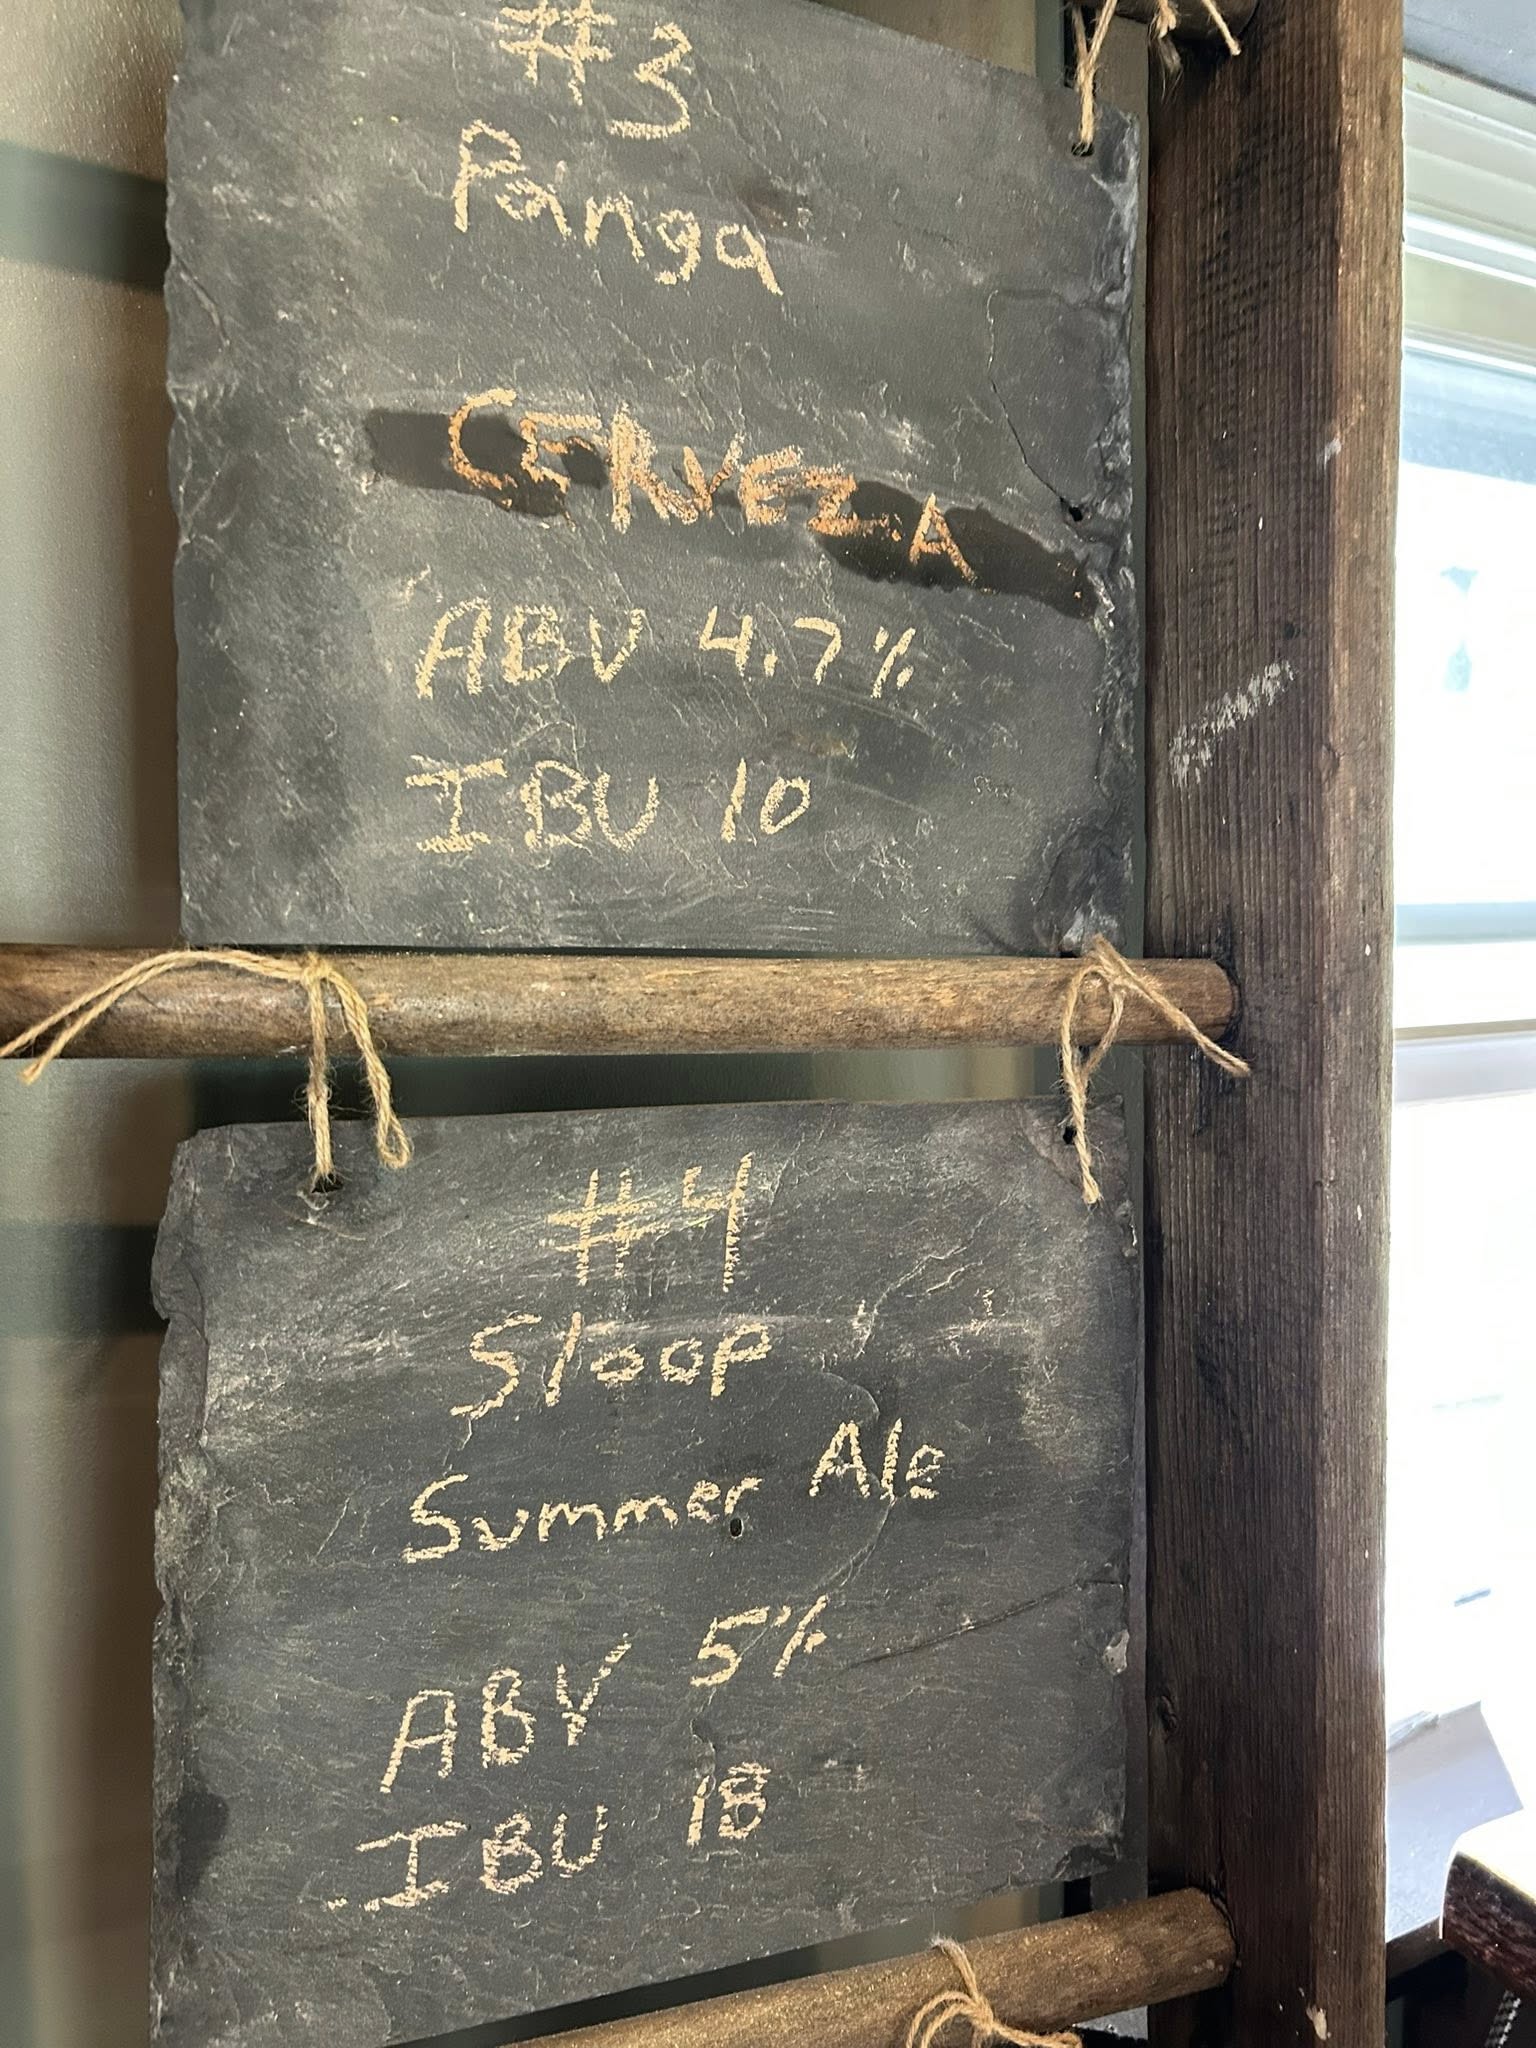 #3
Panga
CERVEZA
ABV 4.7%
IBU 10
#4
Sloop
Summer Ale
ABV 5%
IBU 18